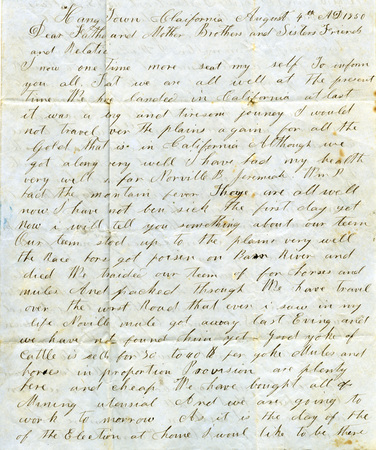 Hang Town California August 4th AD 1850
Dear Father and Mother Brothers and Sisters Friends
and Relatives
I now one time more seat my self To inform
you all That we are all well at the present
time We hav landed in California at last
it was a long and tiresom journey I would
not travel over the plains again for all the
Gold that is in California Although we
got along very well I have had my health
very well so far Norville B Jeremiah Wm P
had the mountain fever Thoye are all well
now I have not ben sick the first day yet
Now i will tell you something about our team
Our team stod up to the plains very well
the Race hors got poison on Bear River and
died We traided our team of for horses and
mules And packed through We have travel
over the worst Road that ever i saw in my
life Norville mule got away last Evning and
we have not found him yet Good yoke of
Cattle is sells for 30 to 40 $ per yoke Mules and
horses in proportion Provision are plenty
here and cheap We have bought all of
Mining utensial And we are going to
work to morrow As it is the day of the
of the Election at home I wont like to be there